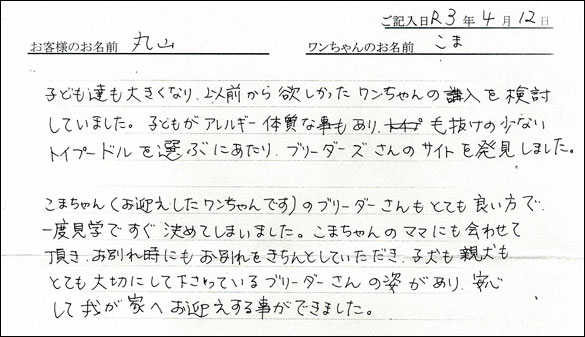 ご記入日R3年4月12日
お客様のお名前 丸山 ワンちゃんのお名前 こま
子ども達も大きくなり、以前から欲しかったワンちゃんの購入を検討
していました。子どもがアレルギー体質な事もあり、も抜けの少ない
トイプードルを選ぶにあたり、ブリーダーズさんのサイトを発見しました。
こまちゃん(お迎えしたワンちゃんです)のブリーダーさんもとても良い方で、
一度見学ですぐ決めてしまいました。こまちゃんのママにも会わせて
頂き、お別れ時にもお別れをきちんとしていただき、子犬も親犬も
とても大切にして下さっているブリーダーさんの姿があり、安心
して我が家へお迎えする事ができました。